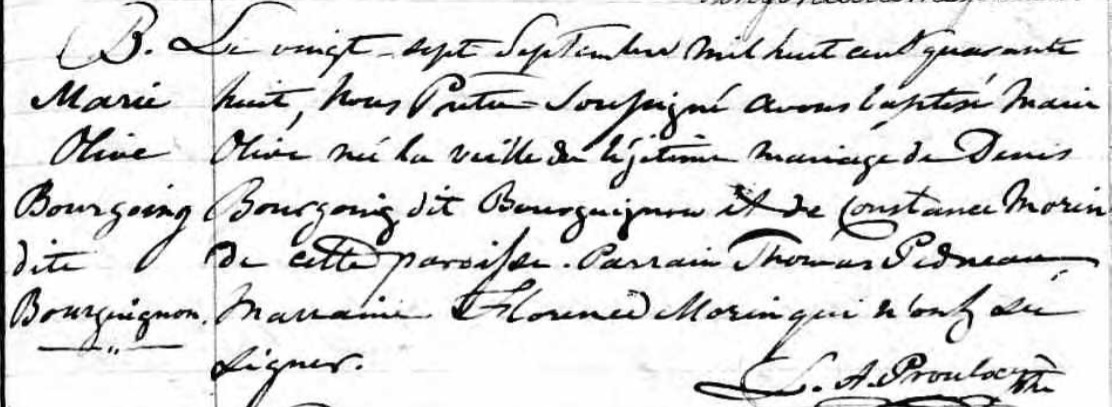 B.
Marie
Olive
Bourgoing
dite
Bourguignon.
Le vingt-sept Septembre mil huit cent quarante
huit, Nous Prêtre Soussigné avons baptisé Marie
Olive née la veille du légitime mariage de Denis
Bourgoing dit Bourguignon et de Constance Morin
de cette paroisse. Parrain Thomas Pedneau
Marraine Florence Morin qui n'ont su
signer.
L. A. Proulx Ptre